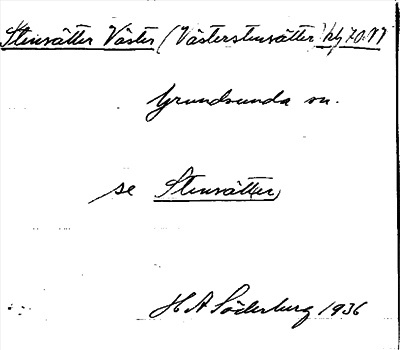 Stensätter Väster (Västerstensätter
Grundsunda sn.
se Stensätter
H A Söderburg 1936